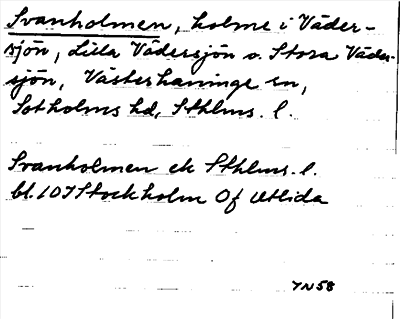 Svanholmen, holme i Väder-
sjön, Lilla Vädersjön o. Stora Väder-
sjön, Västerhaninge sn,
Sotholms hd, Sthlms. l.
Svanholmen ek Sthlms. l.
bl. 107 Stockholm Of Utlida
YN58